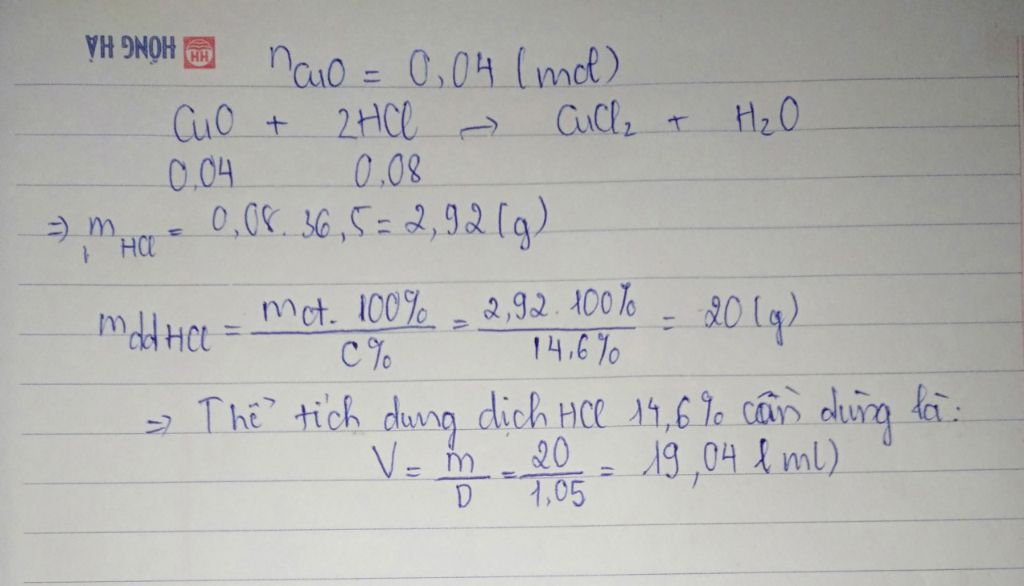 HỒNG HÀ HH
nCuO = 0,04 (mol)
CuO + 2HCl → CuCl₂ + H₂O
0,04 0,08
⇒ mHCl = 0,08. 36,5 = 2,92 (g)
mddHCl = mct. 100% / C% = 2,92. 100% / 14,6% = 20 (g)
⇒ Thể tích dung dịch HCl 14,6% cần dùng là:
V = m / D = 20 / 1,05 = 19,04 (ml)